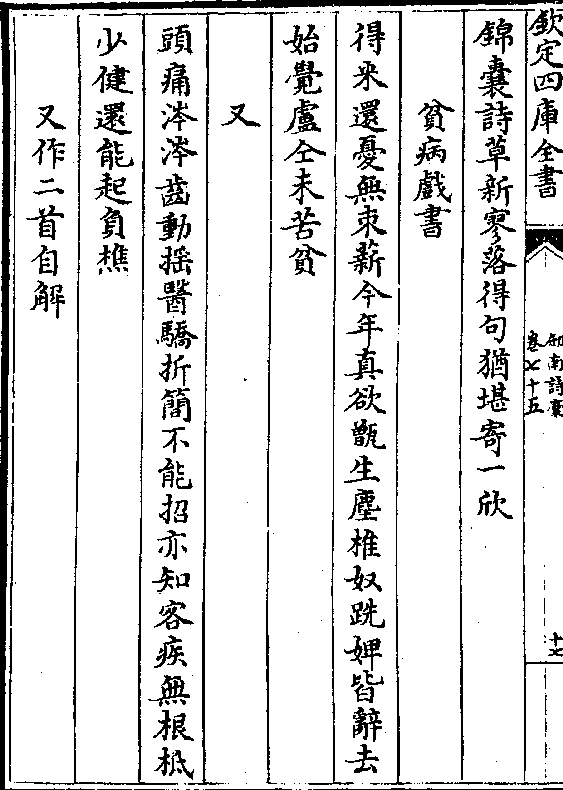 欽定四庫全書
劍南詩稾
卷七十五
十七
錦囊詩草新寥落得句猶堪寄一欣
貧病戲書
得米還憂無束薪今年真欲甑生塵椎奴跣婢皆辭去
始覺盧仝未苦貧
又
頭痛涔涔齒動揺醫驕折簡不能招亦知客疾無根柢
少健還能起負樵
又作二首自解